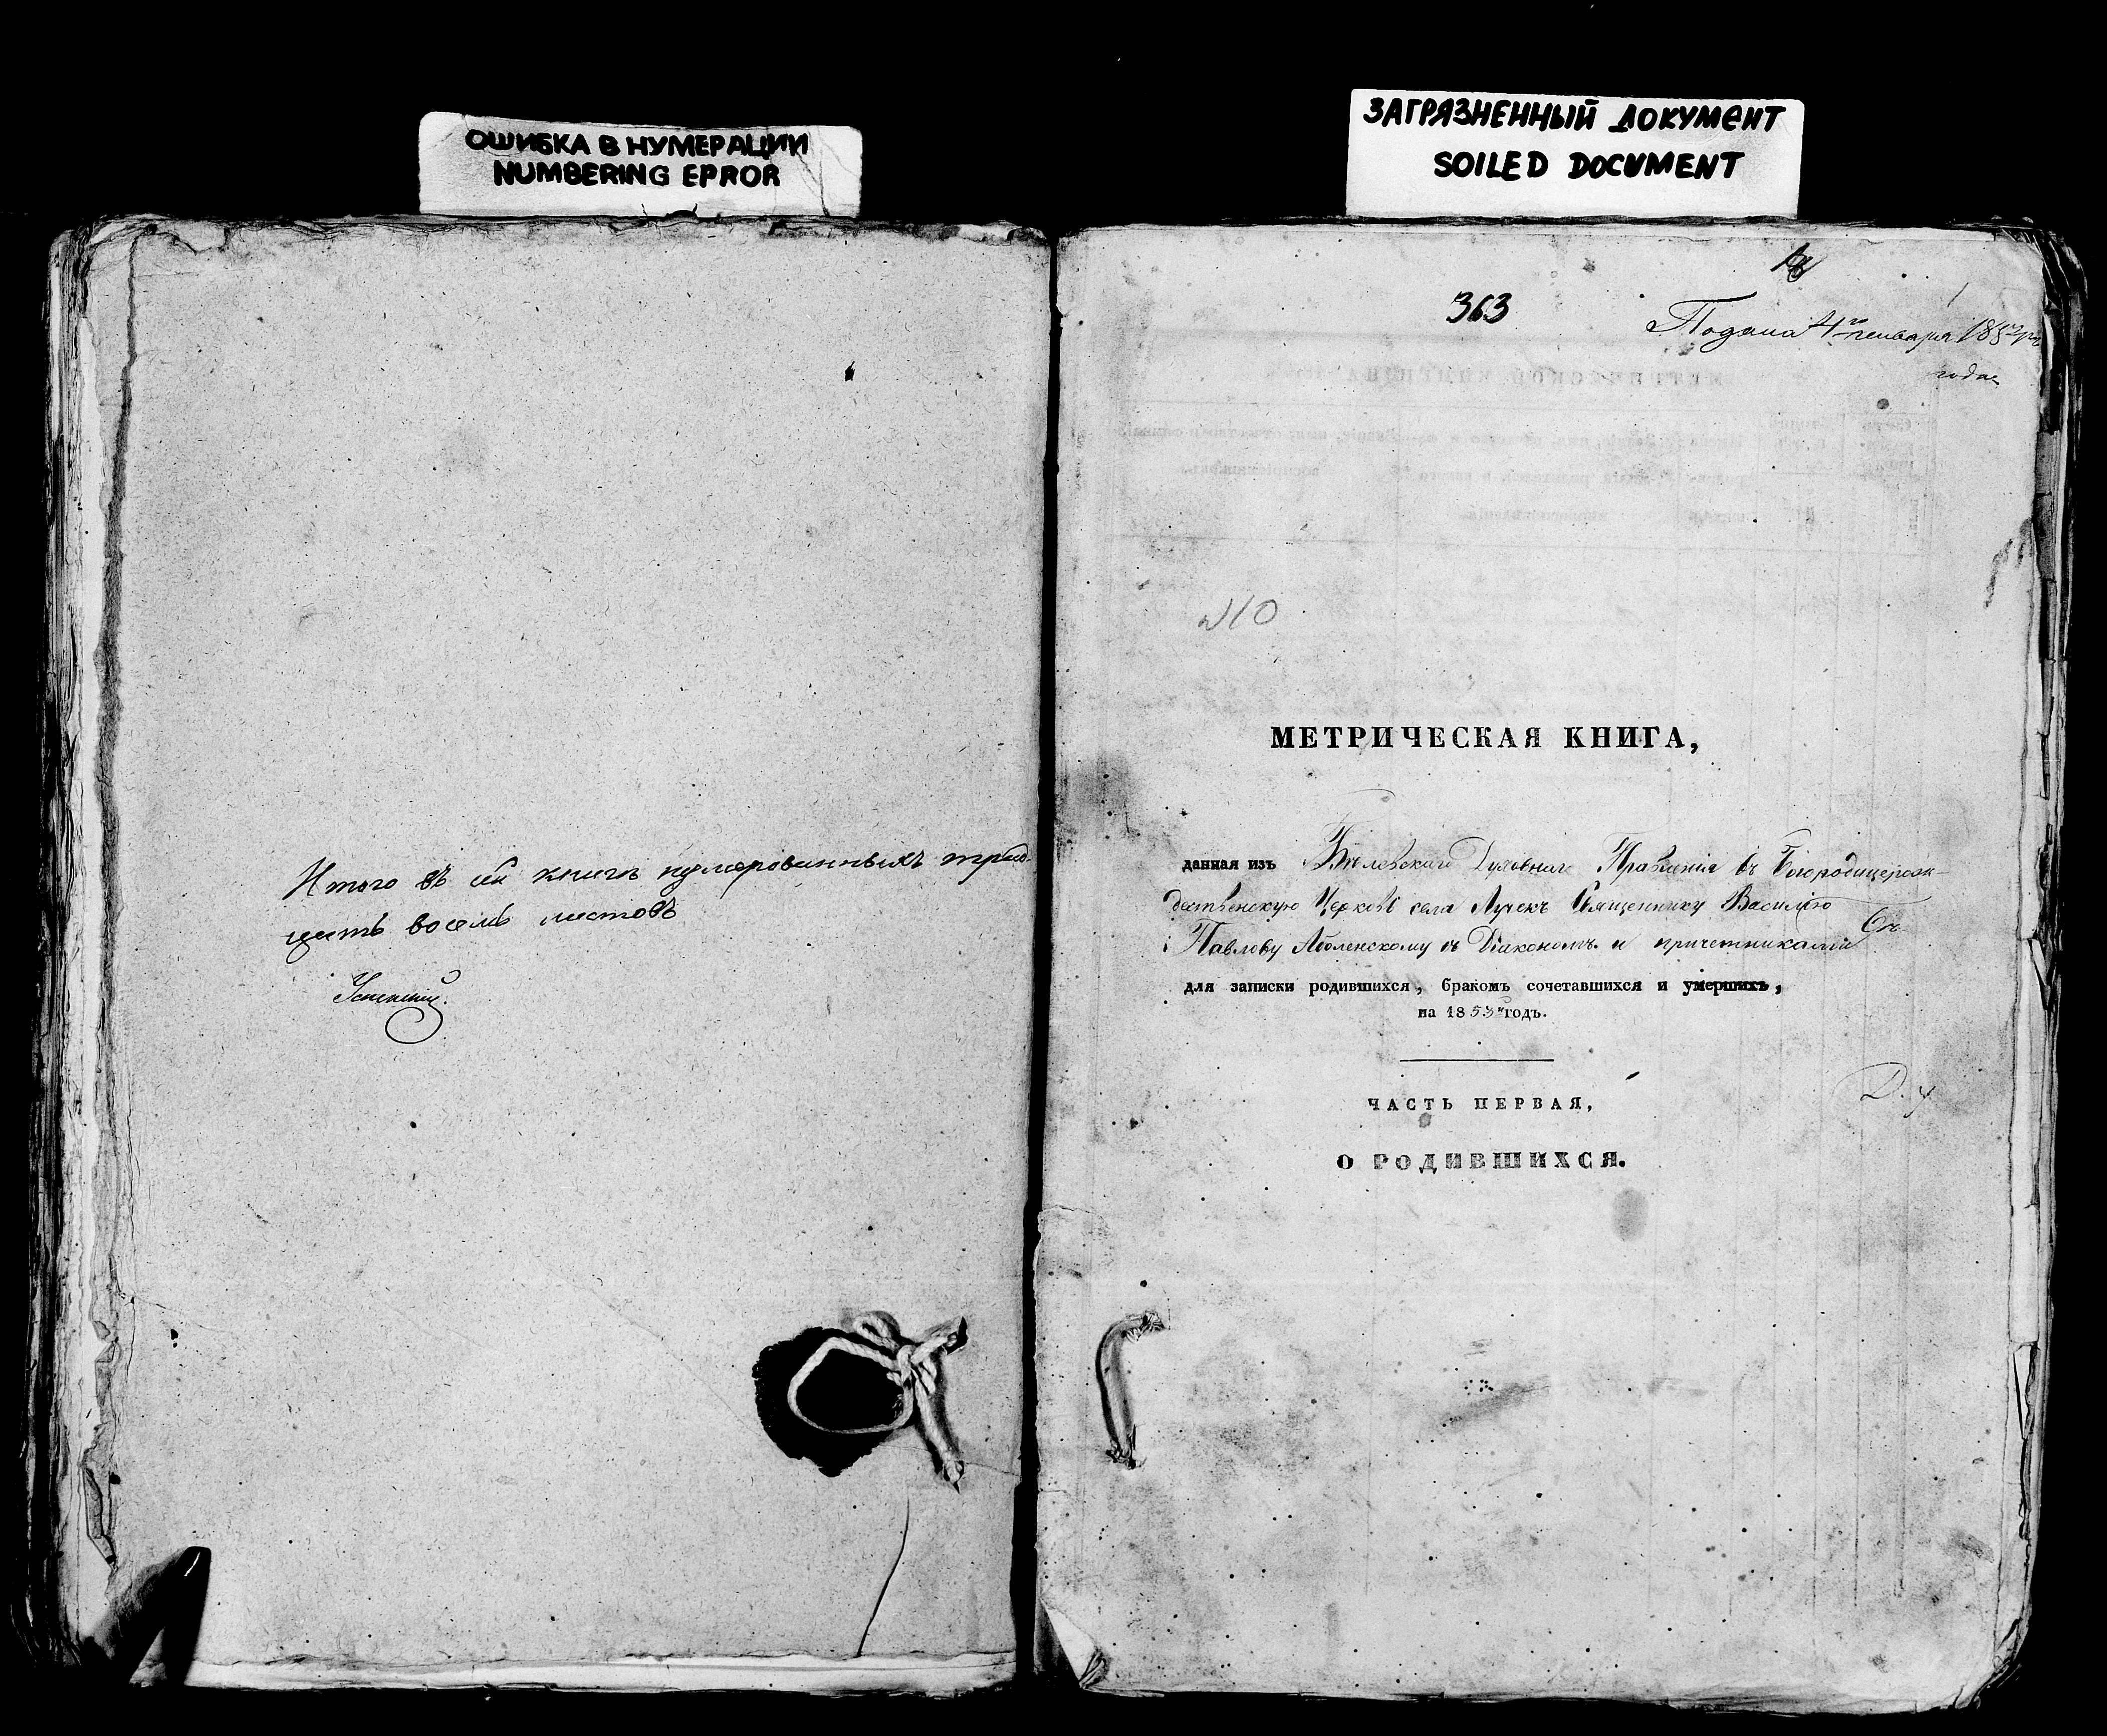 ОШИБКА В НУМЕРАЦИИ
NUMBERING ERROR
ЗАГРЯЗНЕННЫЙ ДОКУМЕНТ
SOILED DOCUMENT
Итого въ сей книгѣ нумерованныхъ трид-
цать восемь листовъ
363
Подана 4го генваря
года
№10
МЕТРИЧЕСКАЯ КНИГА,
данная изъ Бѣлевскаго Духовнаго Правленія въ Богородицерож-
дественскую Церковь села Лучекъ Священнику Василію
Павлову Аболенскому съ Діакономъ и причетниками
для записки родившихся, бракомъ сочетавшихся и умершихъ,
на 1853й годъ.
ЧАСТЬ ПЕРВАЯ,
О РОДИВШИХСЯ.